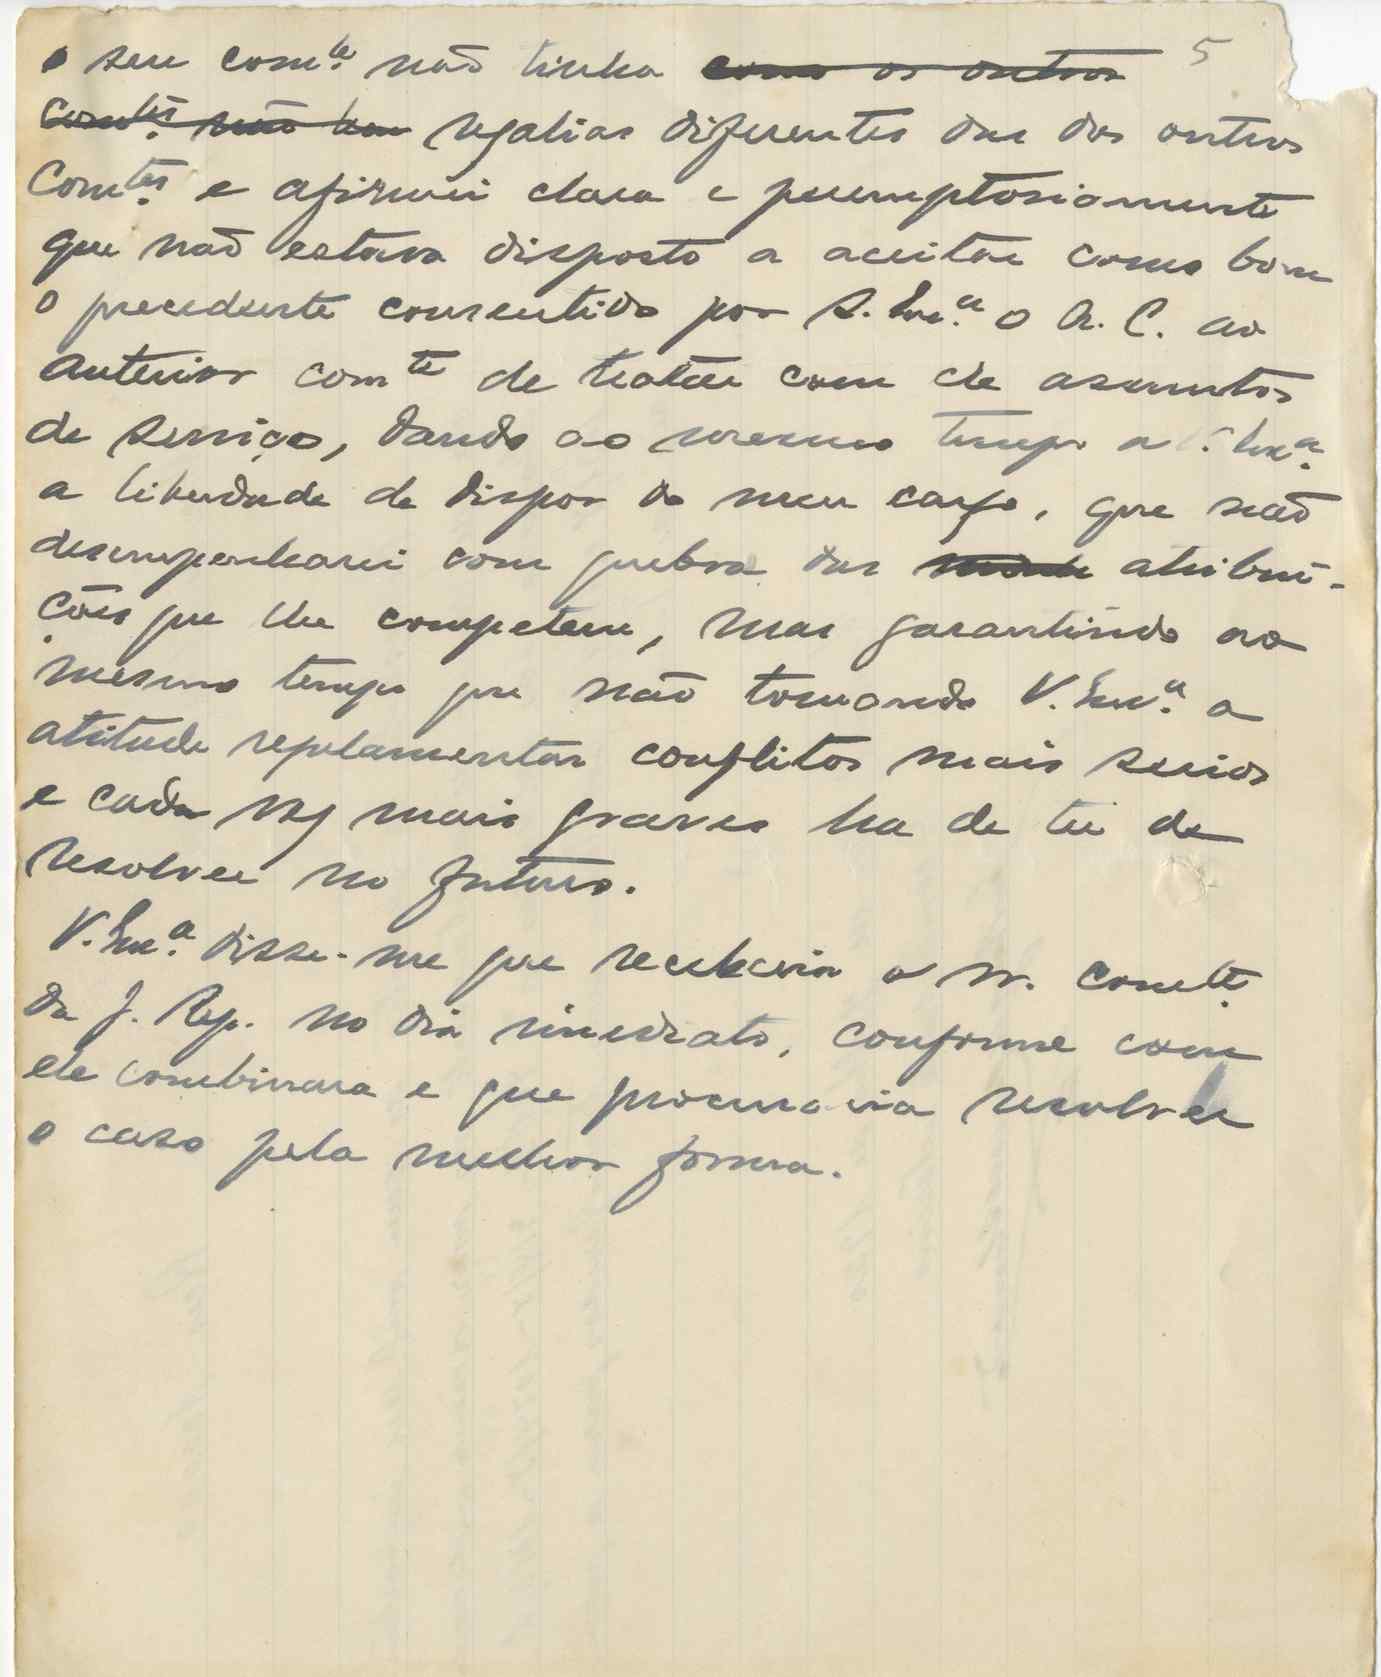 5
o seu com.te não tinha como os outros
com.tes não tem regalias diferentes das dos outros
Com.tes e afirmei clara e peremptoriamente
que não estava disposto a aceitar como bom
o precedente consentido por S. Exc.a o A. C. ao
anterior com.te de tratar com ele assuntos
de serviço, dando ao mesmo tempo a V. Exc.a
a liberdade de dispor do meu cargo, que não
desempenharei com quebra das atribui-
ções que lhe competem, mas garantindo ao
mesmo tempo que não tomando V. Exc.a a
atitude regulamentar conflitos mais serios
e cada vez mais graves ha de ter de
resolver no futuro.
V. Exc.a disse-me que receberia o sr. com.te
da G. Rep. no dia imediato, conforme com
ele combinara e que procuraria resolver
o caso pela melhor forma.